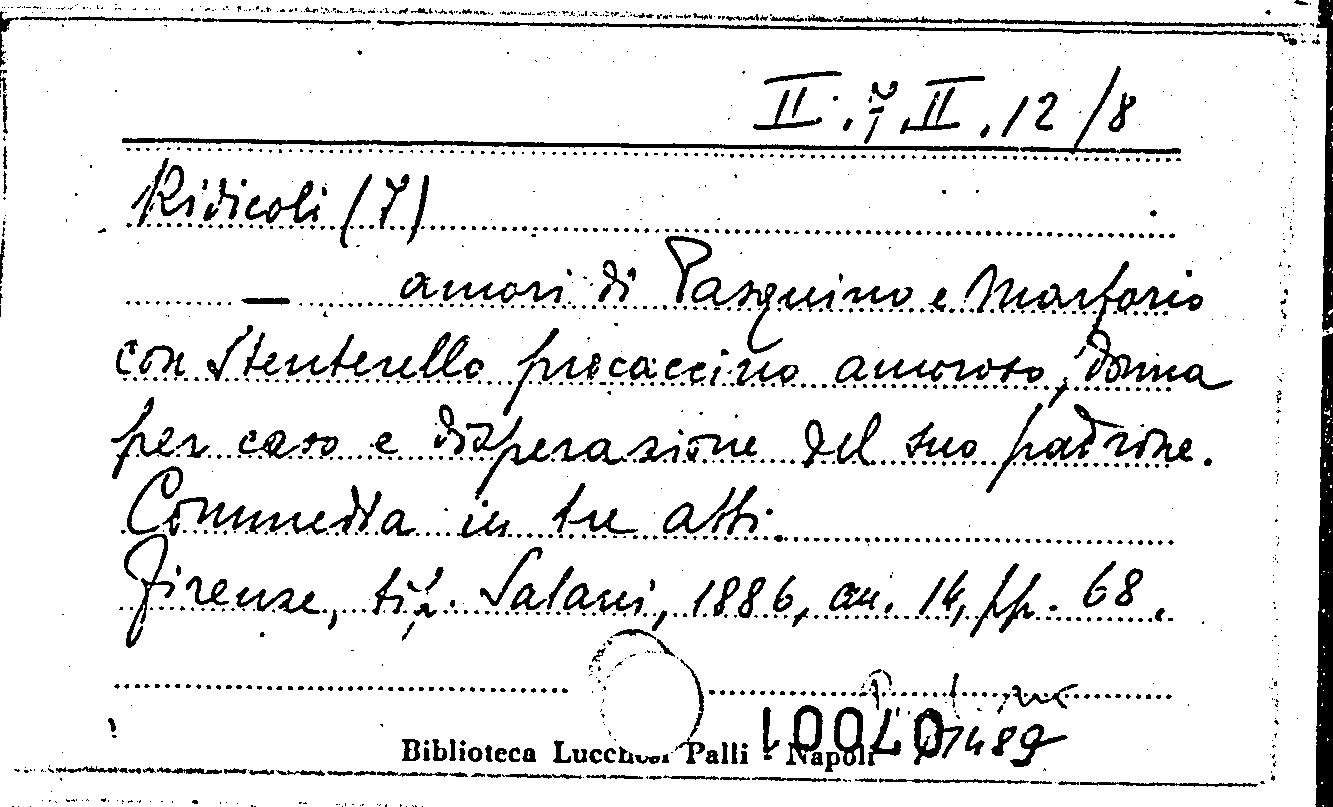 II. 7. II. 12/8
Ridicoli (I)
— amori di Pasquino e Marforio
con Stenterello procaccino amoroso, donna
per caso e disperazione del suo padrone.
Commedia in tre atti.
Firenze, tip. Salani, 1886, in 14, pp. 68.
Biblioteca Lucchesi Palli - Napoli